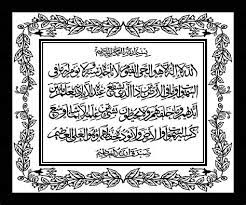 بسم الله الرحمن الرحيم
الله لا إله إلا هو الحي القيوم لا تأخذه سنة ولا نوم له ما في
السموات وما في الأرض من ذا الذي يشفع عنده إلا بإذنه يعلم ما بين
أيديهم وما خلفهم ولا يحيطون بشيء من علمه إلا بما شاء وسع
كرسيه السموات والأرض ولا يؤده حفظهما وهو العلي العظيم
صدق الله العظيم